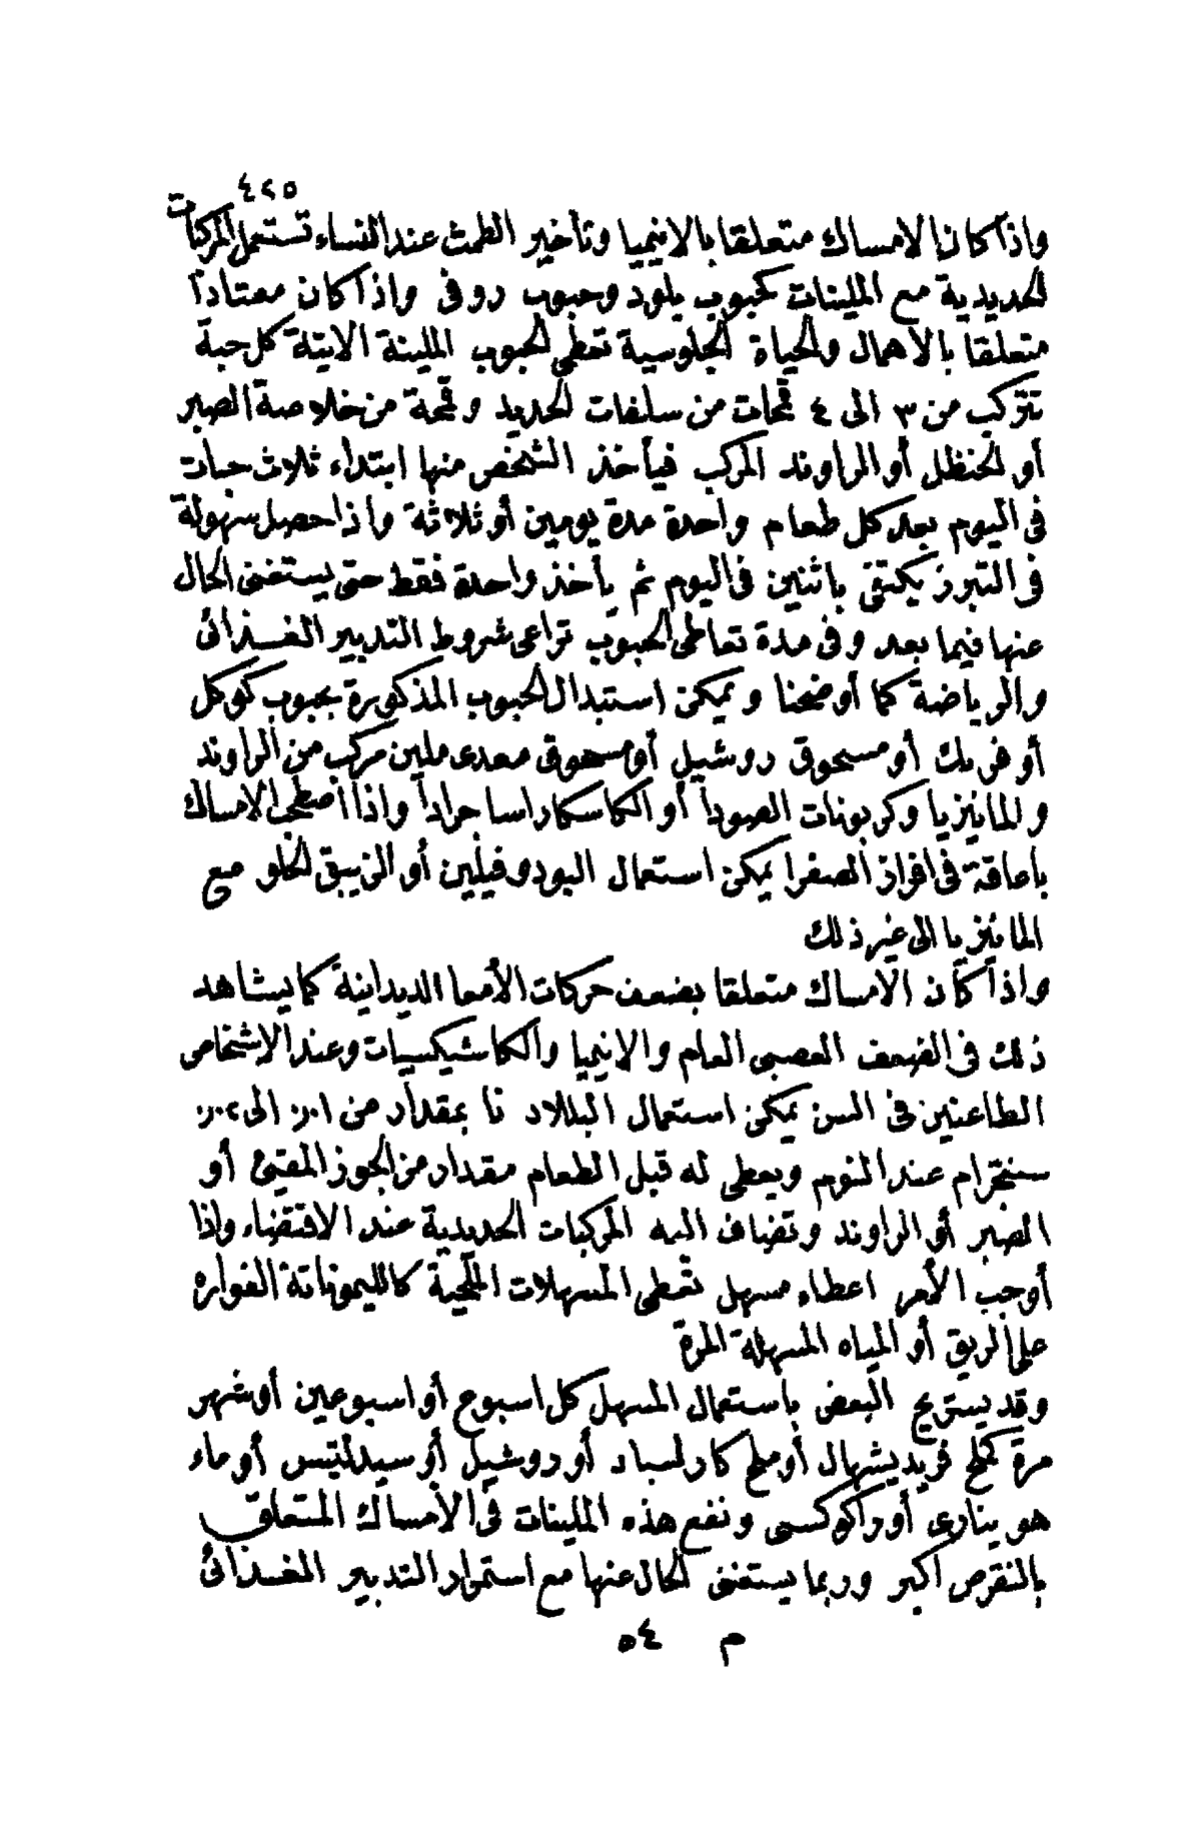 ٤٢٥
واذا كان الامساك متعلقا بالانيميا وتأخير الطمث عند النساء تستعمل المركبات
الحديدية مع الملينات كحبوب بلود وحبوب روفى واذا كان معتادا
متعلقا بالاهمال والحياة الجلوسية تعطى الحبوب الملينة الآتية كل حبة
تتركب من ٣ الى ٤ قمحات من سلفات الحديد وقمحة من خلاصة الصبر
أو الحنظل أو الراوند المركب فيأخذ الشخص منها ابتداء ثلاث حبات
فى اليوم بعد كل طعام واحدة مدة يومين أو ثلاثة واذا حصل سهولة
فى التبرز يكتفى باثنين فى اليوم ثم يأخذ واحدة فقط حتى يستغنى الحال
عنها فيما بعد وفى مدة تعاطى الحبوب تراعى شروط التدبير الغـذائى
والرياضة كما أوضحنا ويمكن استبدال الحبوب المذكورة بحبوب كوكل
أو فرنك أو مسحوق روشيل أو مسحوق معدى ملين مركب من الراوند
والمانيزيا وكربونات الصودا أو الكاسكاراساجرادا واذا اصطحب الامساك
باعاقة فى افراز الصفرا يمكن استعمال البودوفيلين أو الزيبق الحلو مع
المانيزيا الى غير ذلك
واذا كان الامساك متعلقا بضعف حركات الأمعا الديدانية كما يشاهد
ذلك فى الضعف العصبى العام والانيميا والكاشيكسيات وعند الاشخاص
الطاعنين فى السن يمكن استعمال البللادنا بمقدار من ٠١ر٠ الى ٠٢ر٠
سنتجرام عند النوم ويعطى له قبل الطعام مقدار من الجوز المقيئ أو
الصبر أو الراوند وتضاف اليه المركبات الحديدية عند الاقتضاء واذا
أوجب الأمر اعطاء مسهل تعطى المسهلات الملحية كالليموناتة الفواره
على الريق أو المياه المسهلة المرة
وقد يستريح البعض باستعمال المسهل كل اسبوع أو اسبوعين أو شهر
مرة كملح فريديشهال أو ملح كارلسباد أو روشيل أو سيدلتيس أو ماء
هونيارى أو راكوكسى ونفع هذه الملينات فى الأمساك المتعلق
بالنقرص أكبر وربما يستغنى الحال عنها مع استمرار التدبير الغـذائى
م ٥٤